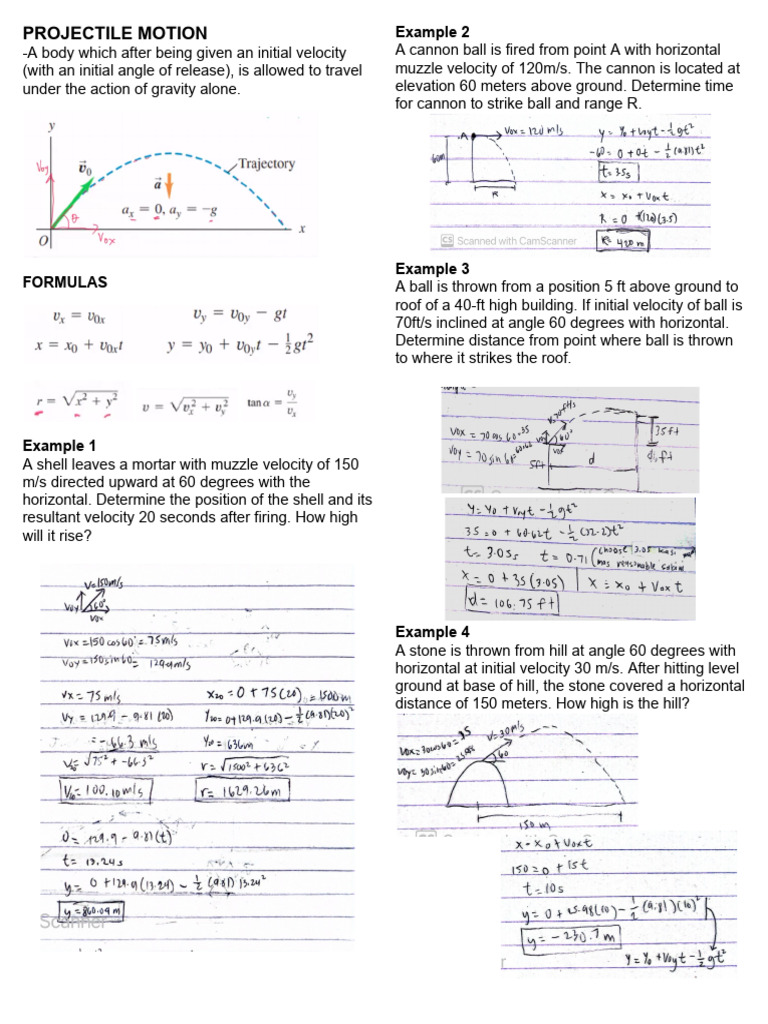 PROJECTILE MOTION
-A body which after being given an initial velocity
(with an initial angle of release), is allowed to travel
under the action of gravity alone.
y
Voy
v₀
Trajectory
a
θ
aₓ = 0, a_y = −g
Vox
O
x
FORMULAS
vₓ = v₀ₓ
v_y = v₀y − gt
x = x₀ + v₀ₓt
y = y₀ + v₀yt − ½gt²
r = √x² + y²
v = √vₓ² + v_y²
tan α = v_y/vₓ
Example 1
A shell leaves a mortar with muzzle velocity of 150
m/s directed upward at 60 degrees with the
horizontal. Determine the position of the shell and its
resultant velocity 20 seconds after firing. How high
will it rise?
V=150m/s
Voy
60°
Vox
Vox=150 cos60°=75m/s
Voy=150sin60= 129.9m/s
Vx=75m/s
X₂₀=0+75(20)=1500m
Vy=129.9−9.81(20)
Y₂₀=0+129.9(20)−½(9.81)(20)²
=-66.3 m/s
Y₂₀=636m
r=√1500²+636²
V₂₀=100.10m/s
r=1629.26m
0=129.9−9.81(t)
t=13.24s
y=0+129.9(13.24)−½(9.81)13.24²
y=860.04m
Scanner
Example 2
A cannon ball is fired from point A with horizontal
muzzle velocity of 120m/s. The cannon is located at
elevation 60 meters above ground. Determine time
for cannon to strike ball and range R.
A
Vox=120 m/s
60m
R
y=y₀+Voyt−½gt²
-60=0+0t−½(9.81)t²
t=3.5s
x=x₀+Voxt
R=0+(120)(3.5)
R=420m
CS Scanned with CamScanner
Example 3
A ball is thrown from a position 5 ft above ground to
roof of a 40-ft high building. If initial velocity of ball is
70ft/s inclined at angle 60 degrees with horizontal.
Determine distance from point where ball is thrown
to where it strikes the roof.
V=70ft/s
Vox=70cos60=35
Voy=70sin60=60.62
60°
35ft
5ft
d
y=y₀+Voyt−½gt²
35=0+60.62t−½(32.2)t²
t=3.05s
t=0.71
x=0+35(3.05)
x=x₀+Voxt
d=106.75ft
Example 4
A stone is thrown from hill at angle 60 degrees with
horizontal at initial velocity 30 m/s. After hitting level
ground at base of hill, the stone covered a horizontal
distance of 150 meters. How high is the hill?
Vox=30cos60=15
V=30m/s
60
150m
x=x₀+Voxt
150=0+15t
t=10s
y=0+25.98(10)−½(9.81)(10)²
y=-230.7m
y=y₀+Voyt−½gt²